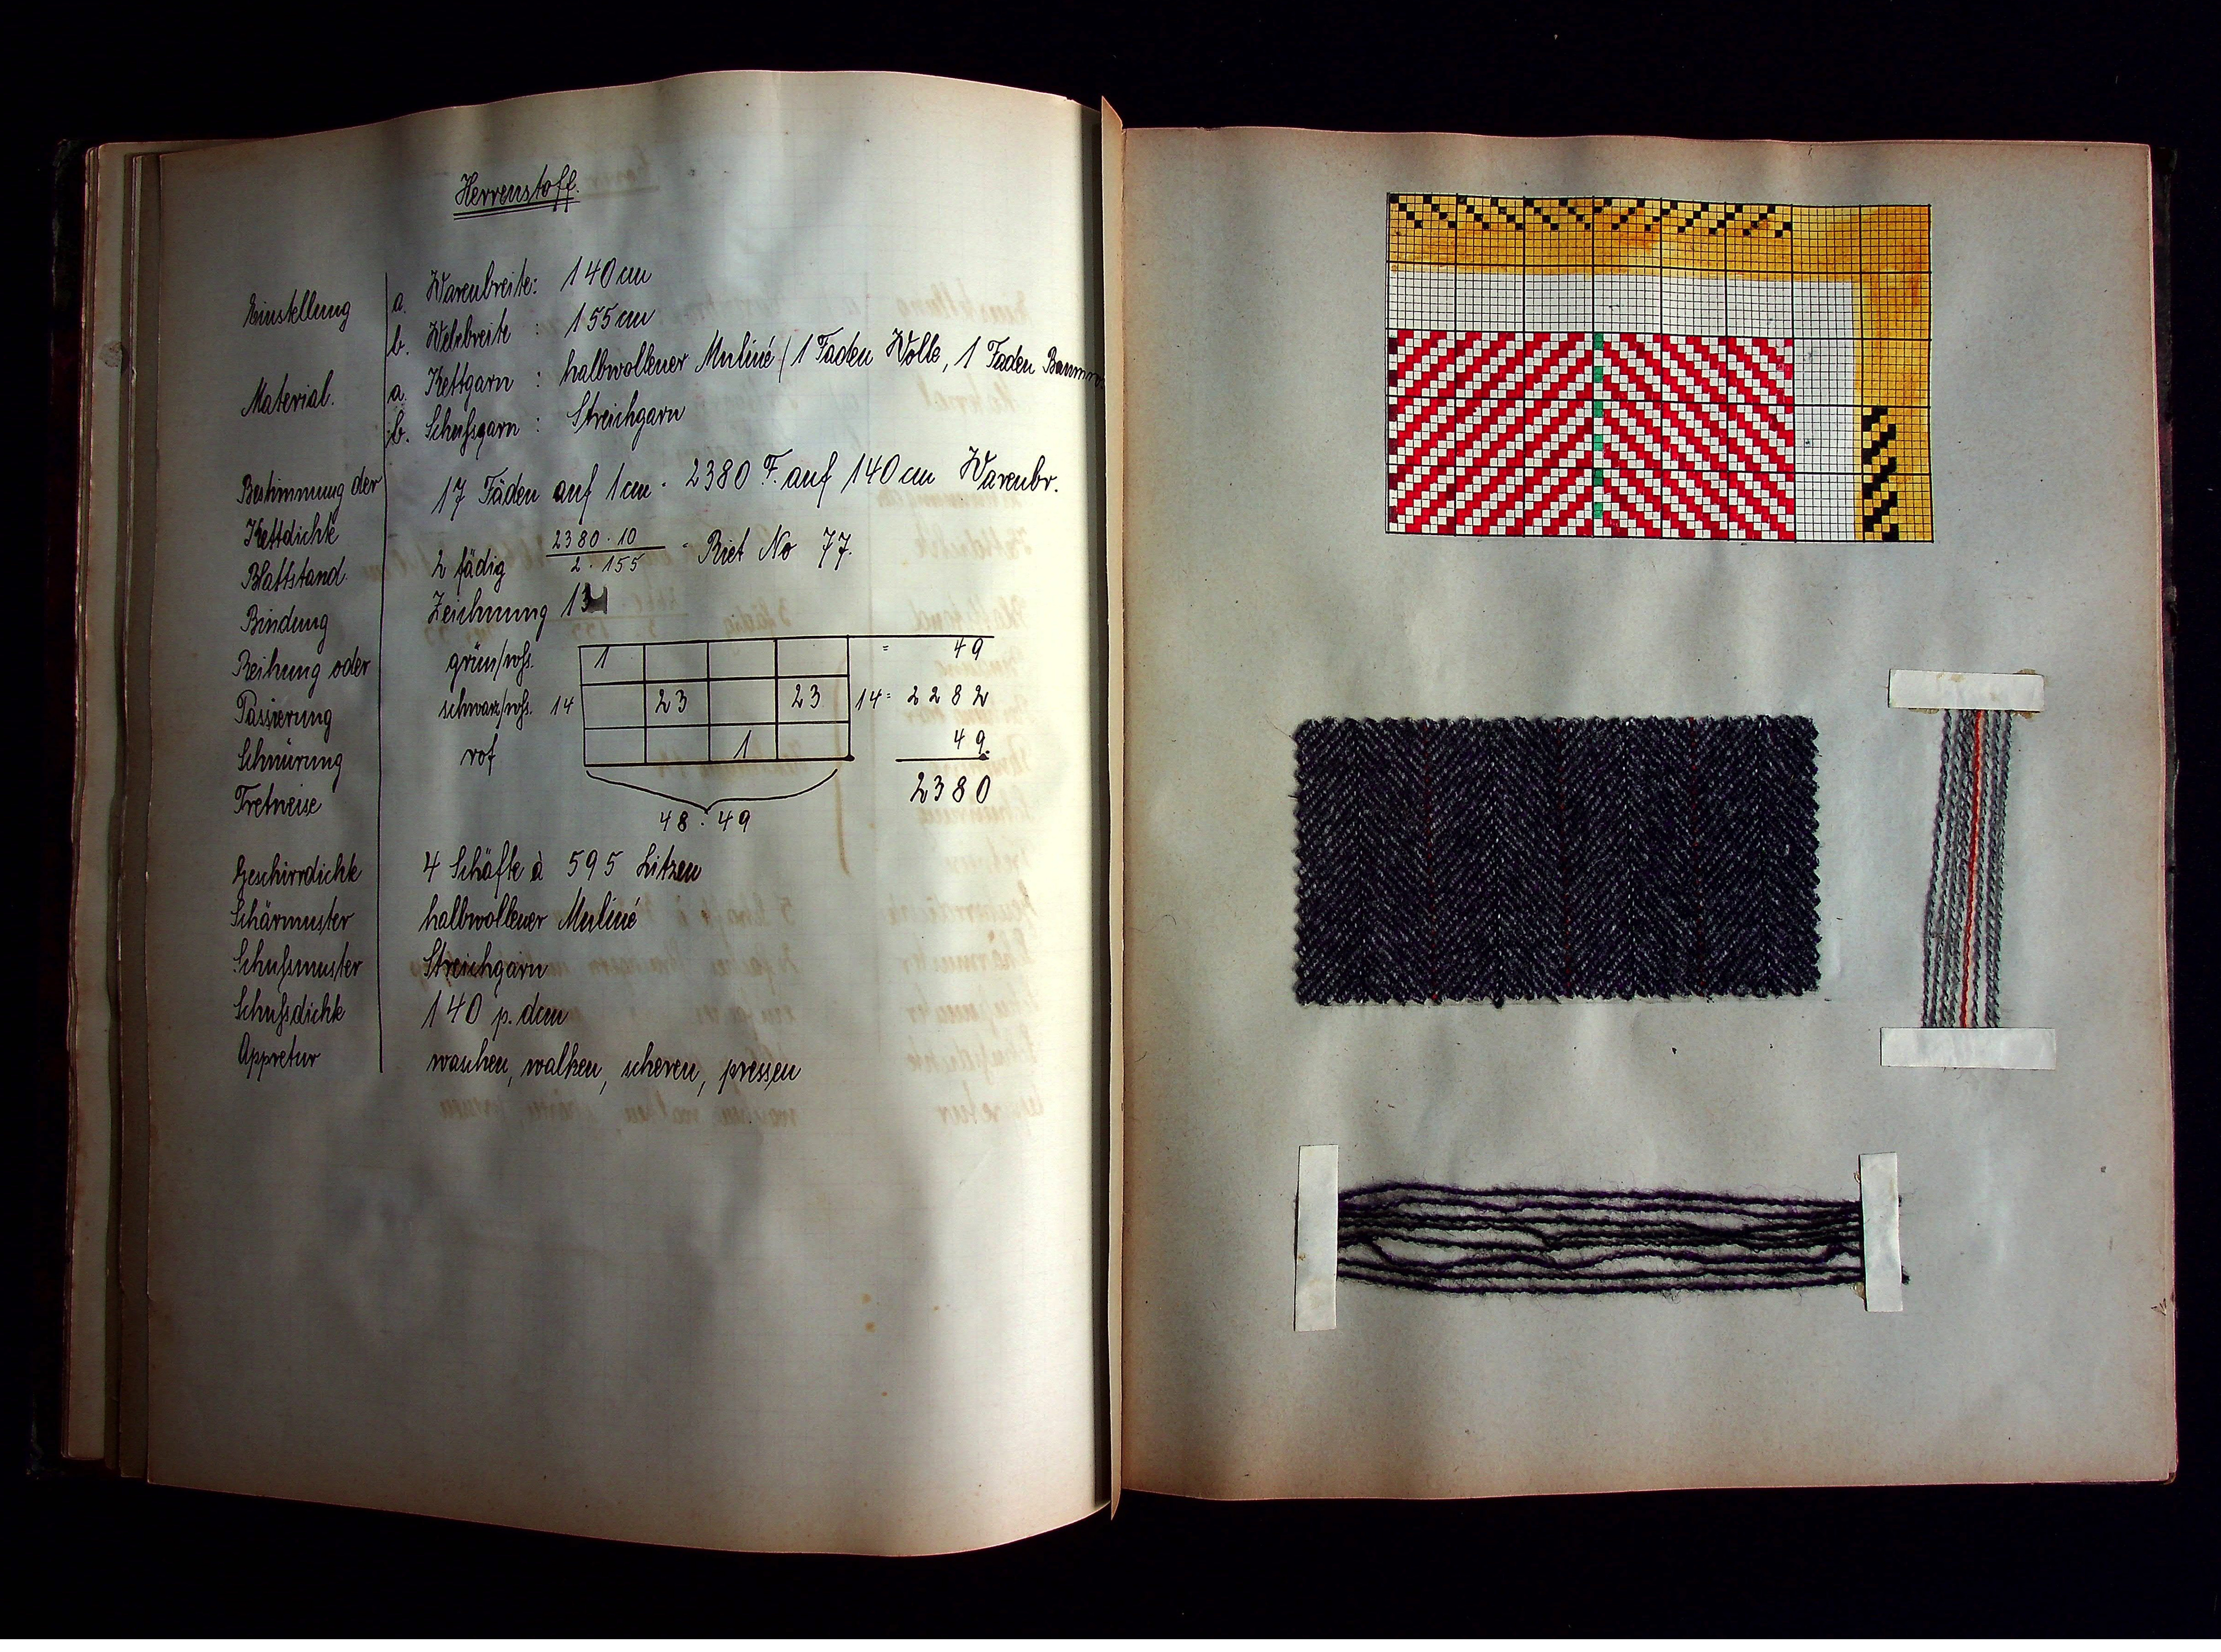 Herrenstoff.
Einstellung a. Warenbreite: 140 cm
b. Webbreite : 155 cm
Material. a. Kettgarn : halbwollener Muliné (1 Faden Wolle, 1 Faden
b. Schußgarn : Streichgarn
Bestimmung der 17 Fäden auf 1 cm · 2380 F. auf 140 cm Warenbr.
Kettdichte
Blattstand. 2 fädig 2380 · 10 / 2 · 155 = Riet No 77.
Bindung Zeichnung
Reihung oder grün/wß. 1 = 49
Passierung schwarz/wß. 14 23 23 14 = 2282
Schnürung rot 1 49.
Tretweise 2380
48 · 49
Geschirrdichte 4 Schäfte à 595 Litzen
Schärmuster halbwollener Muliné
Schußmuster Streichgarn
Schußdichte 140 p. dcm
Appretur waschen, walken, scheren, pressen